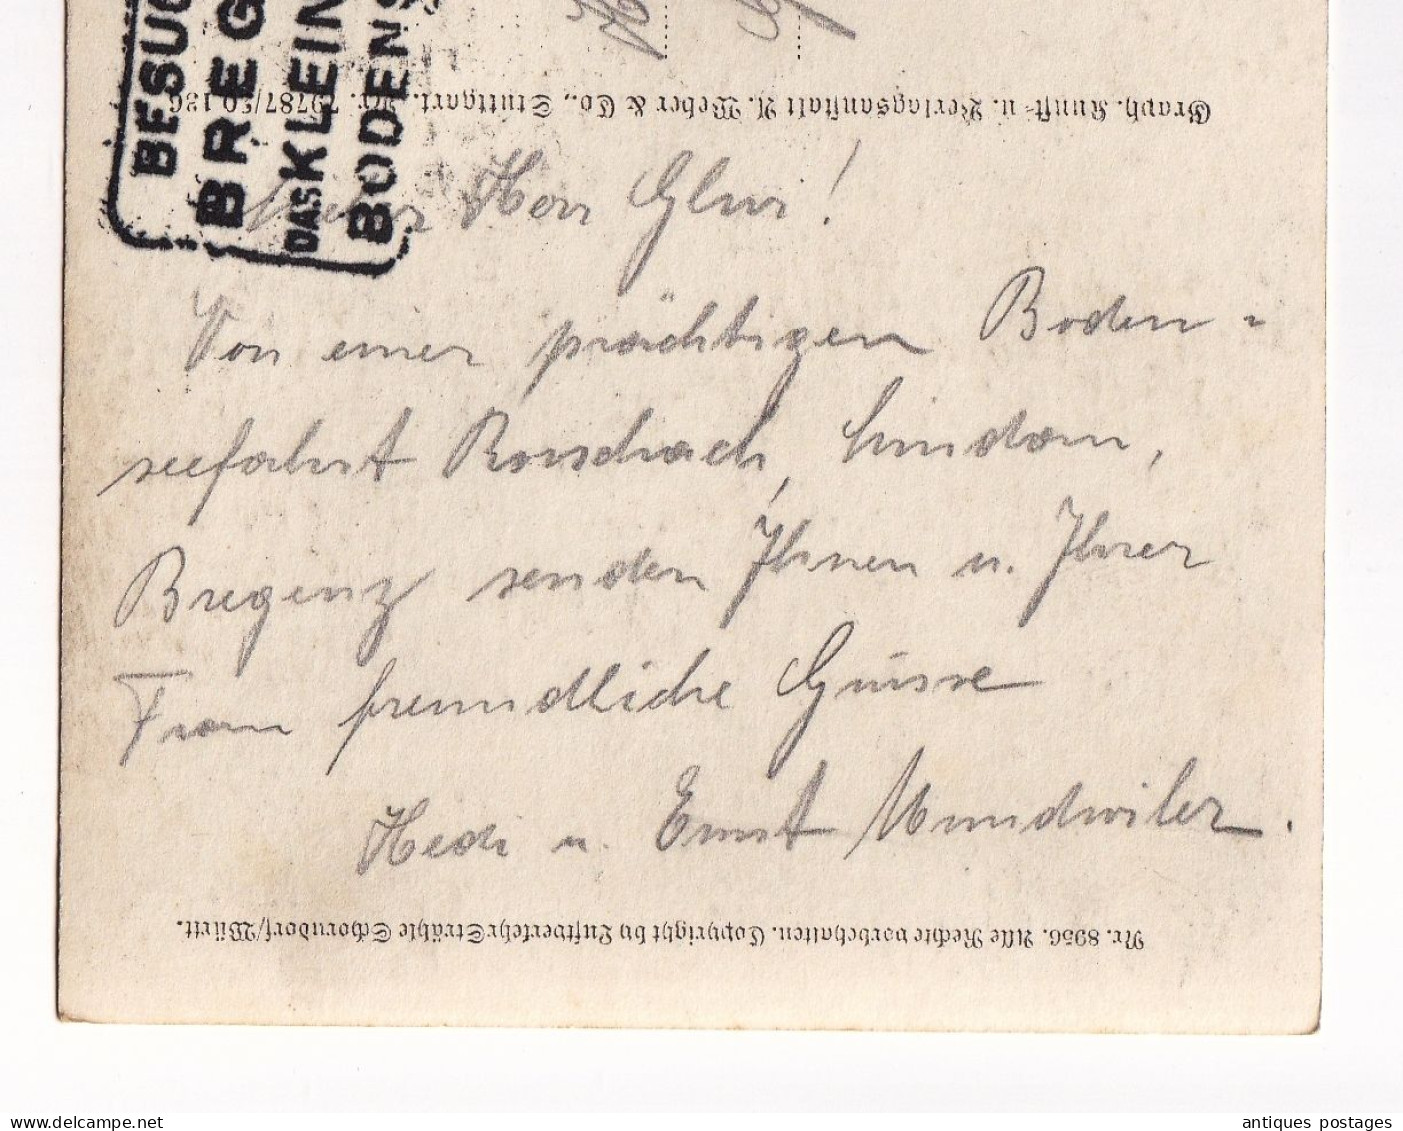 BESUC
BREG
DAS KLEIN
BODENS
Graph. Kunst- u. Verlagsanstalt A. Weber & Co., Stuttgart. Nr. 79787/50 136
Lieber Herr Glur!
Von einer prächtigen Boden-
seefahrt Rorschach, Lindau,
Bregenz senden Ihnen u. Ihrer
Frau freundliche Grüsse
Hedi u. Ernst Mundwiler.
Nr. 8956. Alle Rechte vorbehalten. Copyright by Luftverkehr Strähle Schorndorf/Württ.
antiques postages
www.delcampe.net